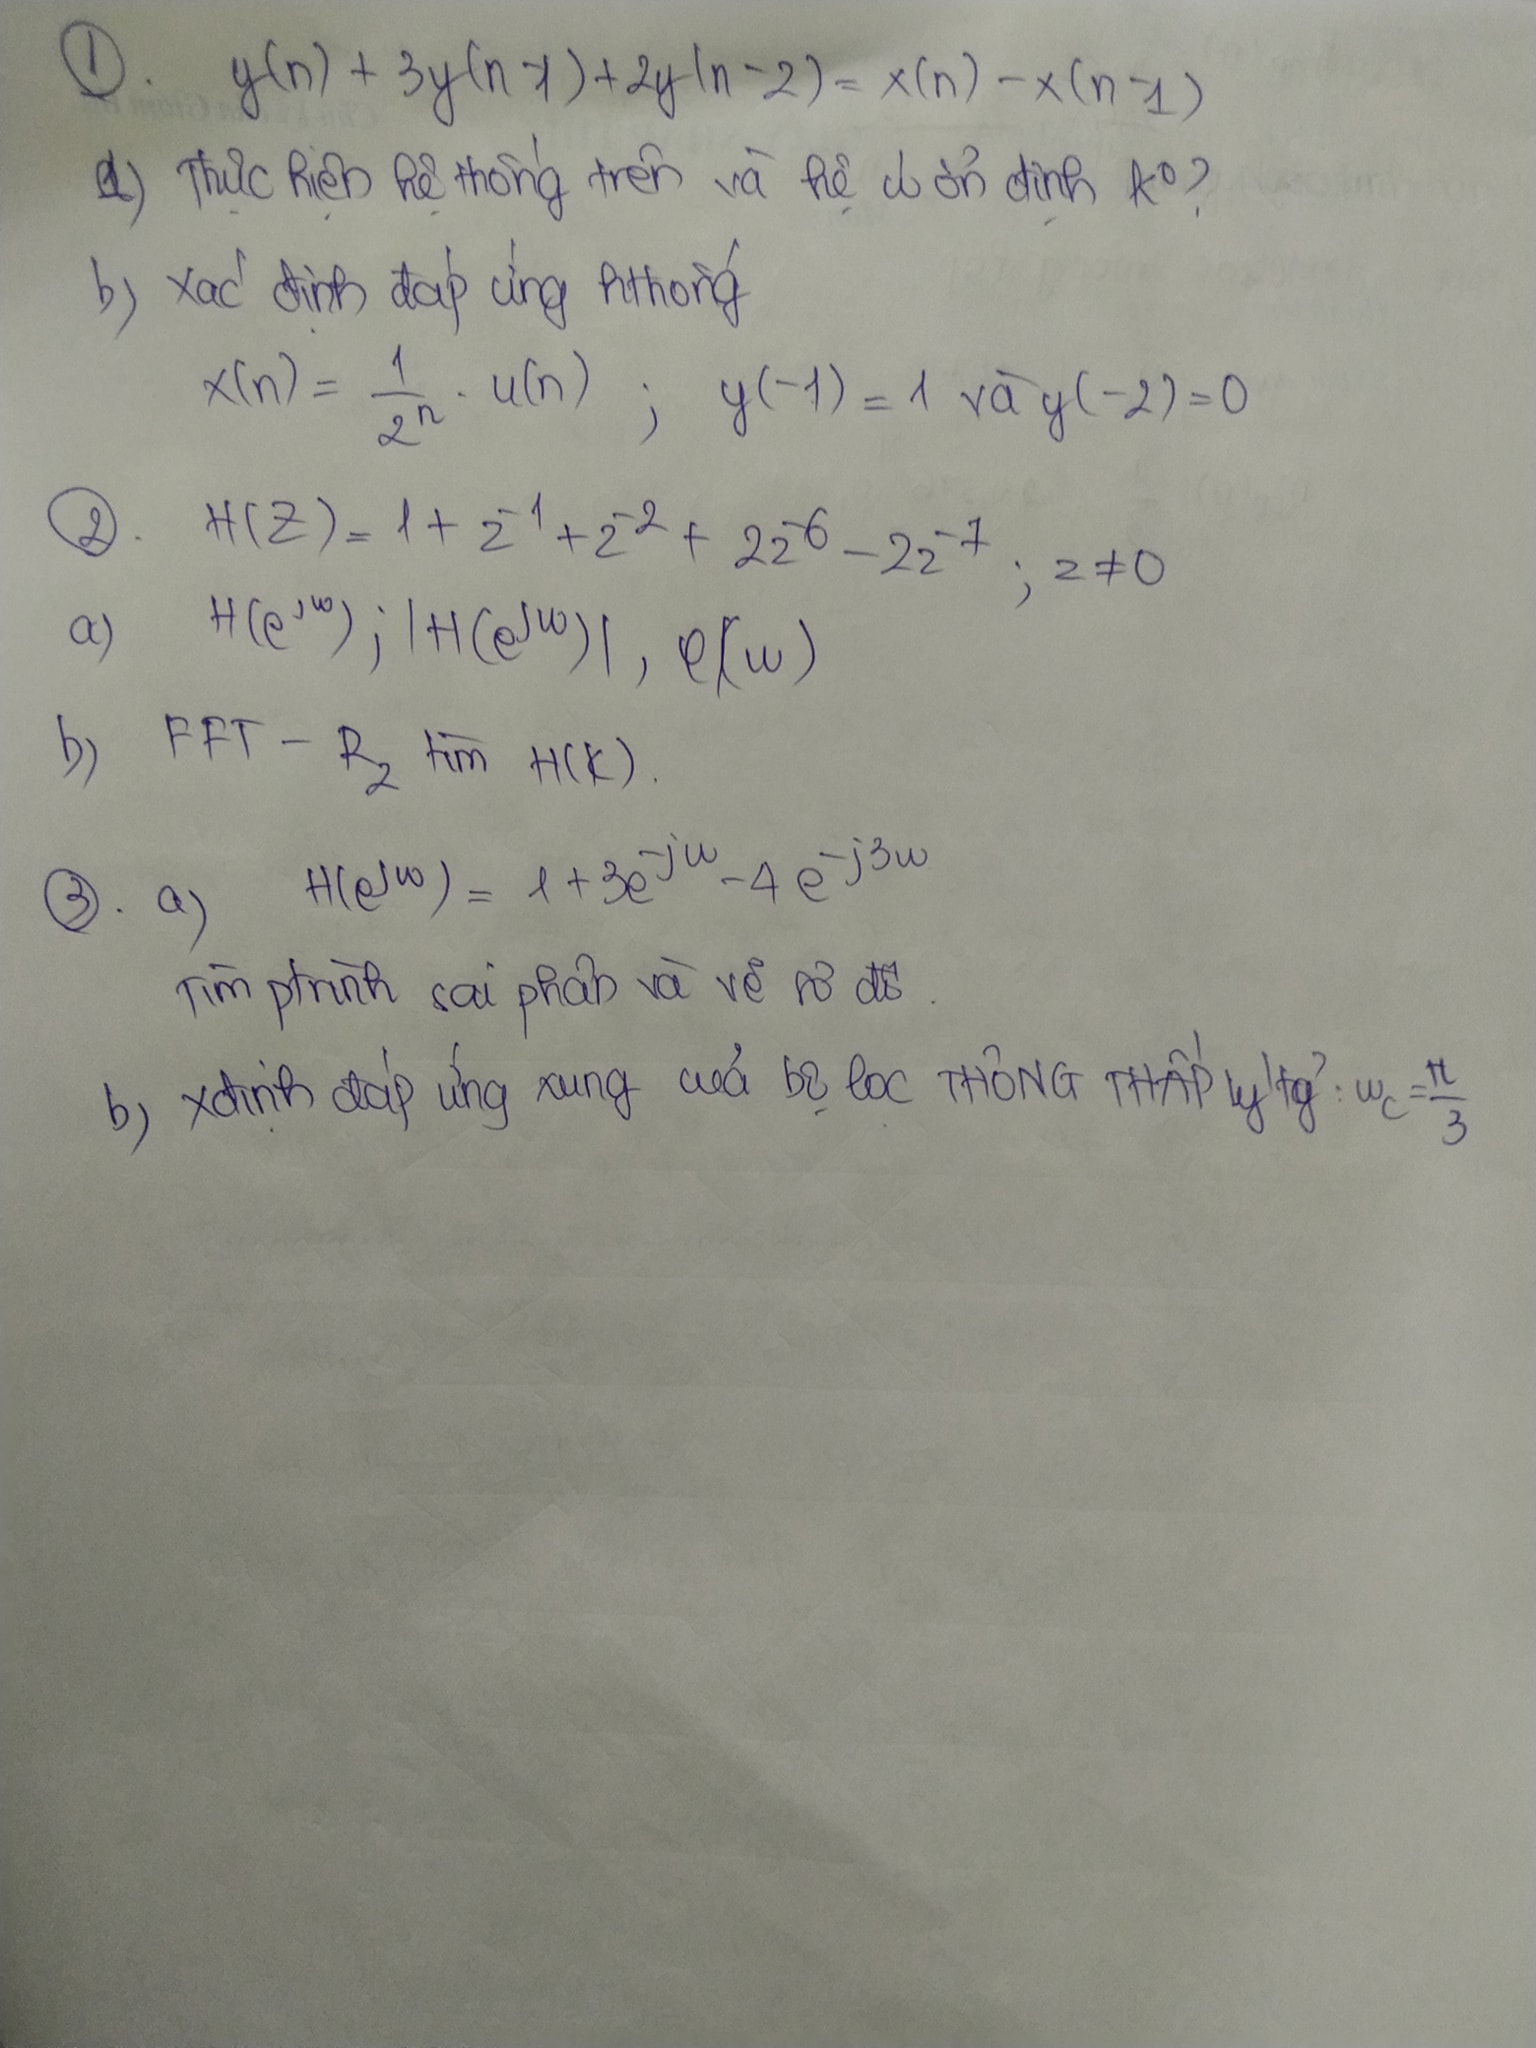 ①. y(n) + 3y(n-1) + 2y(n-2) = x(n) - x(n-1)
a) Thực hiện hệ thống trên và hệ có ổn định ko?
b) Xác định đáp ứng hthống
x(n) = 1/2ⁿ . u(n) ; y(-1) = 1 và y(-2) = 0
②. H(Z) = 1 + z⁻¹ + z⁻² + 2z⁻⁶ - 2z⁻⁷ ; z ≠ 0
a) H(e^jω) ; |H(e^jω)|, φ(ω)
b) FFT - R₂ tìm H(K).
③. a) H(e^jω) = 1 + 3e^-jω - 4e^-j3ω
Tìm ptrình sai phân và vẽ sơ đồ.
b) xđịnh đáp ứng xung cuả bộ lọc THÔNG THẤP lý tg² : ω_c = π/3